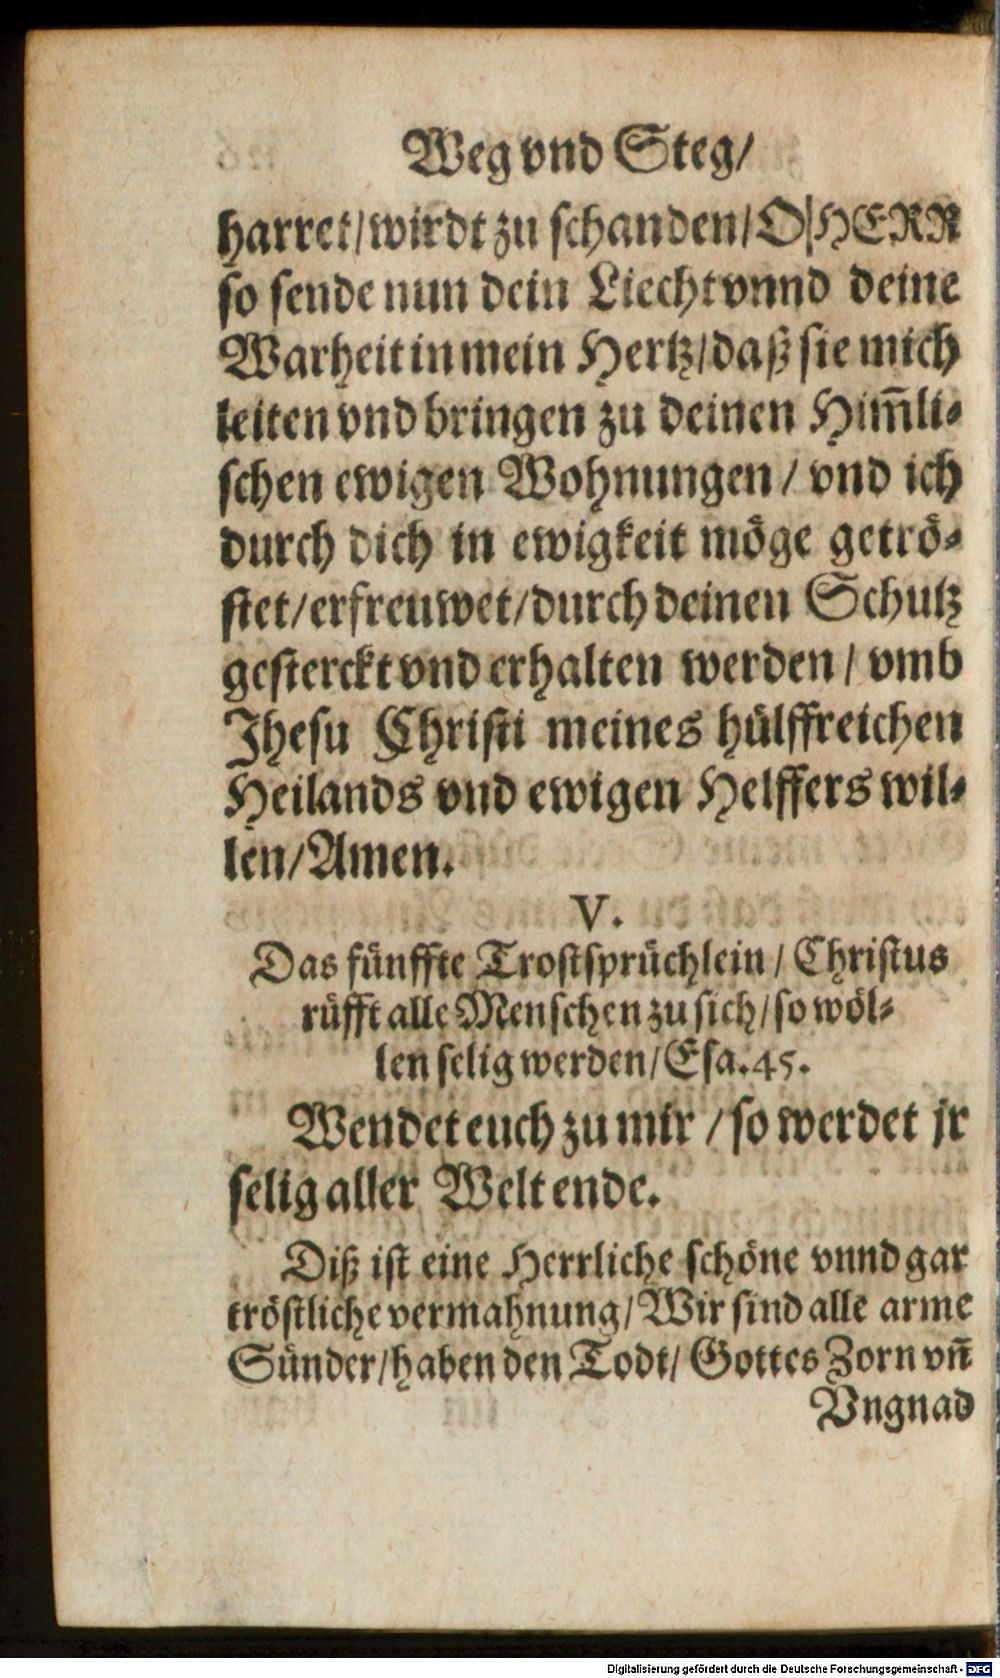 Weg vnd Steg/
harret/wirdt zu schanden/O HERR
so sende nun dein Liecht vnnd deine
Warheit in mein Hertz/daß sie mich
leiten vnd bringen zu deinen Him̃li-
schen ewigen Wohnungen/ vnd ich
durch dich in ewigkeit möge getrö-
stet/erfreuwet/durch deinen Schutz
gesterckt vnd erhalten werden/ vmb
Jhesu Christi meines hülffreichen
Heilands vnd ewigen Helffers wil-
len/Amen.
V.
Das fünffte Trostsprüchlein/ Christus
rüfft alle Menschen zu sich/so wöl-
len selig werden/Esa.45.
Wendet euch zu mir/so werdet jr
selig aller Welt ende.
Diß ist eine Herrliche schöne vnnd gar
tröstliche vermahnung/Wir sind alle arme
Sünder/haben den Todt/ Gottes Zorn vñ
Vngnad
Digitalisierung gefördert durch die Deutsche Forschungsgemeinschaft - DFG